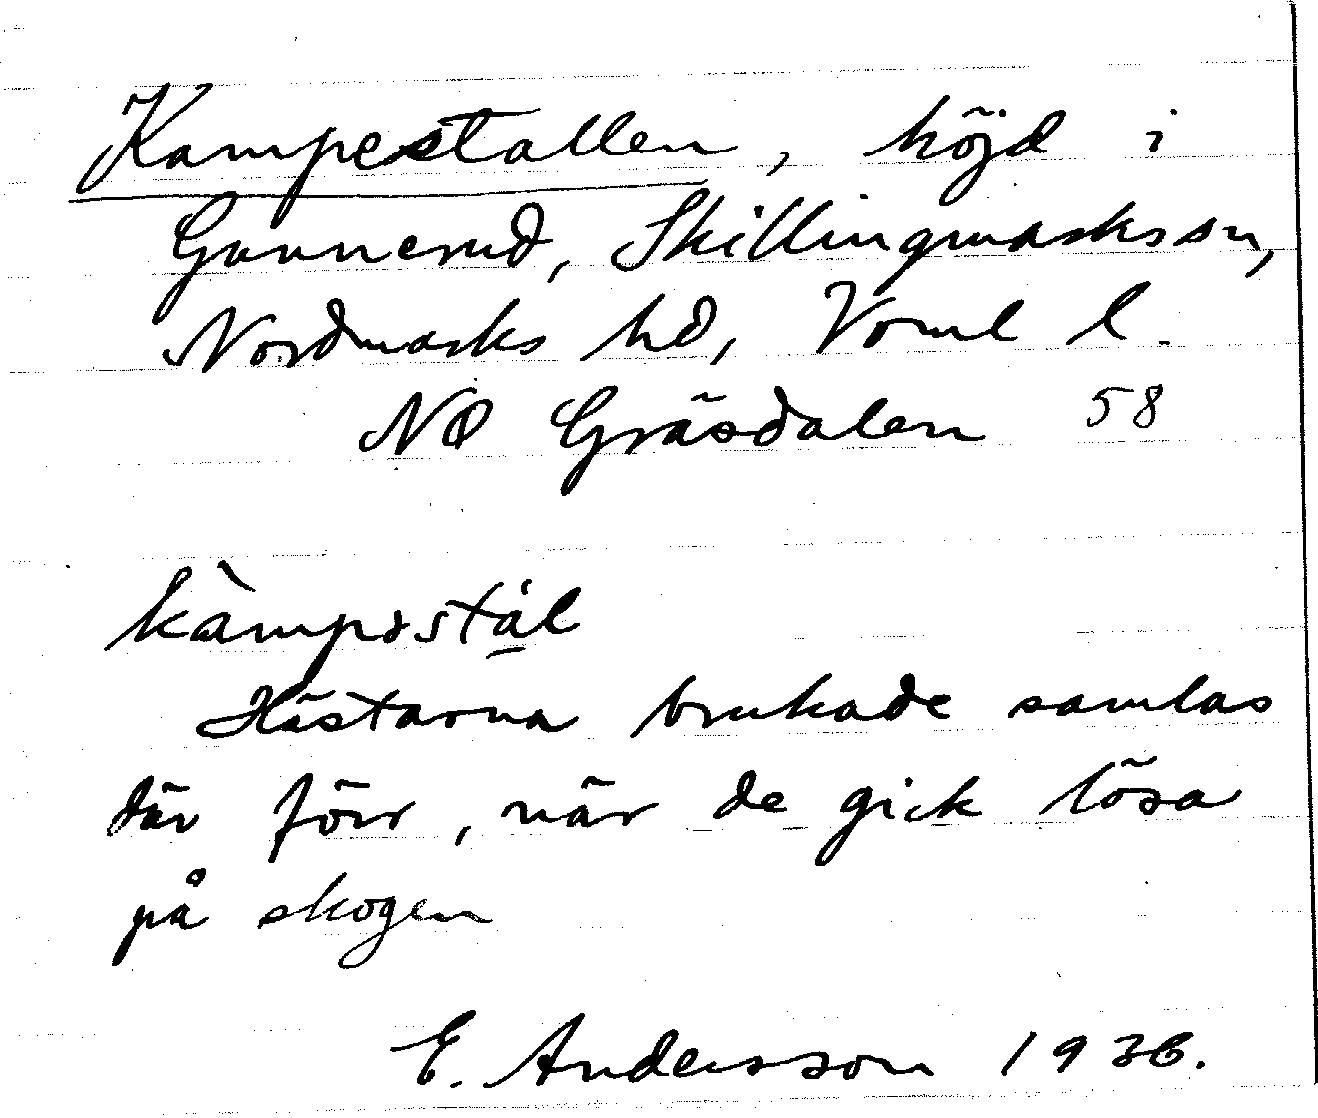 Kampestallen, höjd i
Gunnerud, Skillingmarks sn,
Nordmarks hd, Värml l.
NO Gräsdalen 58
Hästarna brukade samlas
där förr, när de gick lösa
på skogen
E. Andersson 1936.